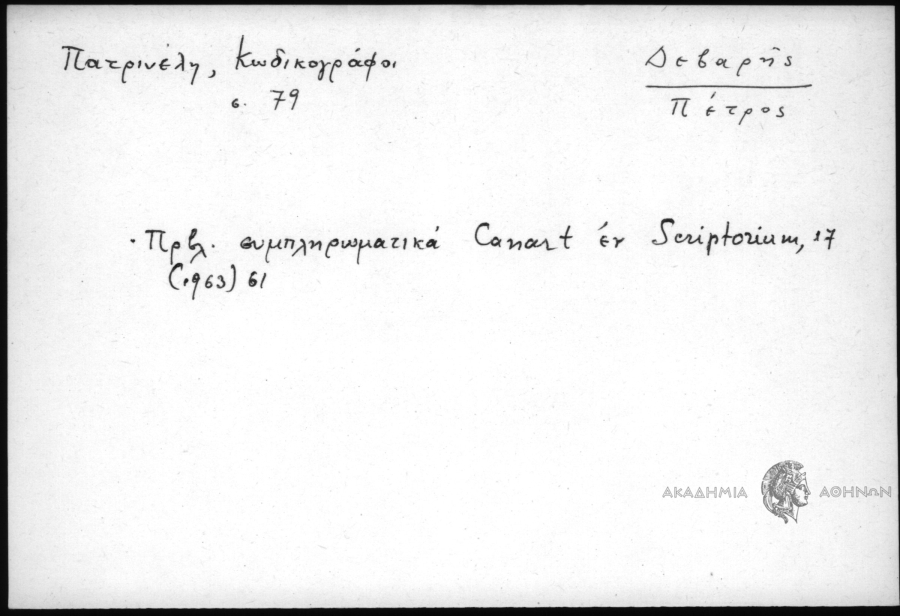 Πατρινέλη, Κωδικογράφοι
σ. 79
Δεβαρῆς
Πέτρος
· Πρβλ. συμπληρωματικά Canart ἐν Scriptorium, 17
(1963) 61
ΑΚΑΔΗΜΙΑ ΑΘΗΝΩΝ